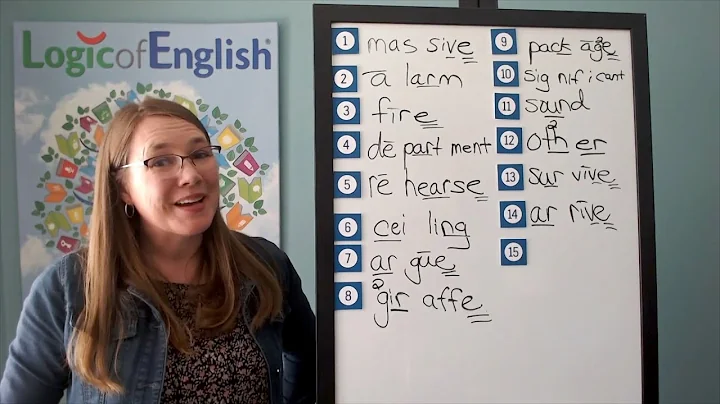 LogicofEnglish®
1 mas sive
2 ā larm
3 fīre
4 dē part ment
5 rē hearse
6 cei ling
7 ar gūe
8 ²gir affe
9 pack āg²e
10 sig nif i cant
11 sound
12 o²th er
13 sur vīve
14 ar rīve
15